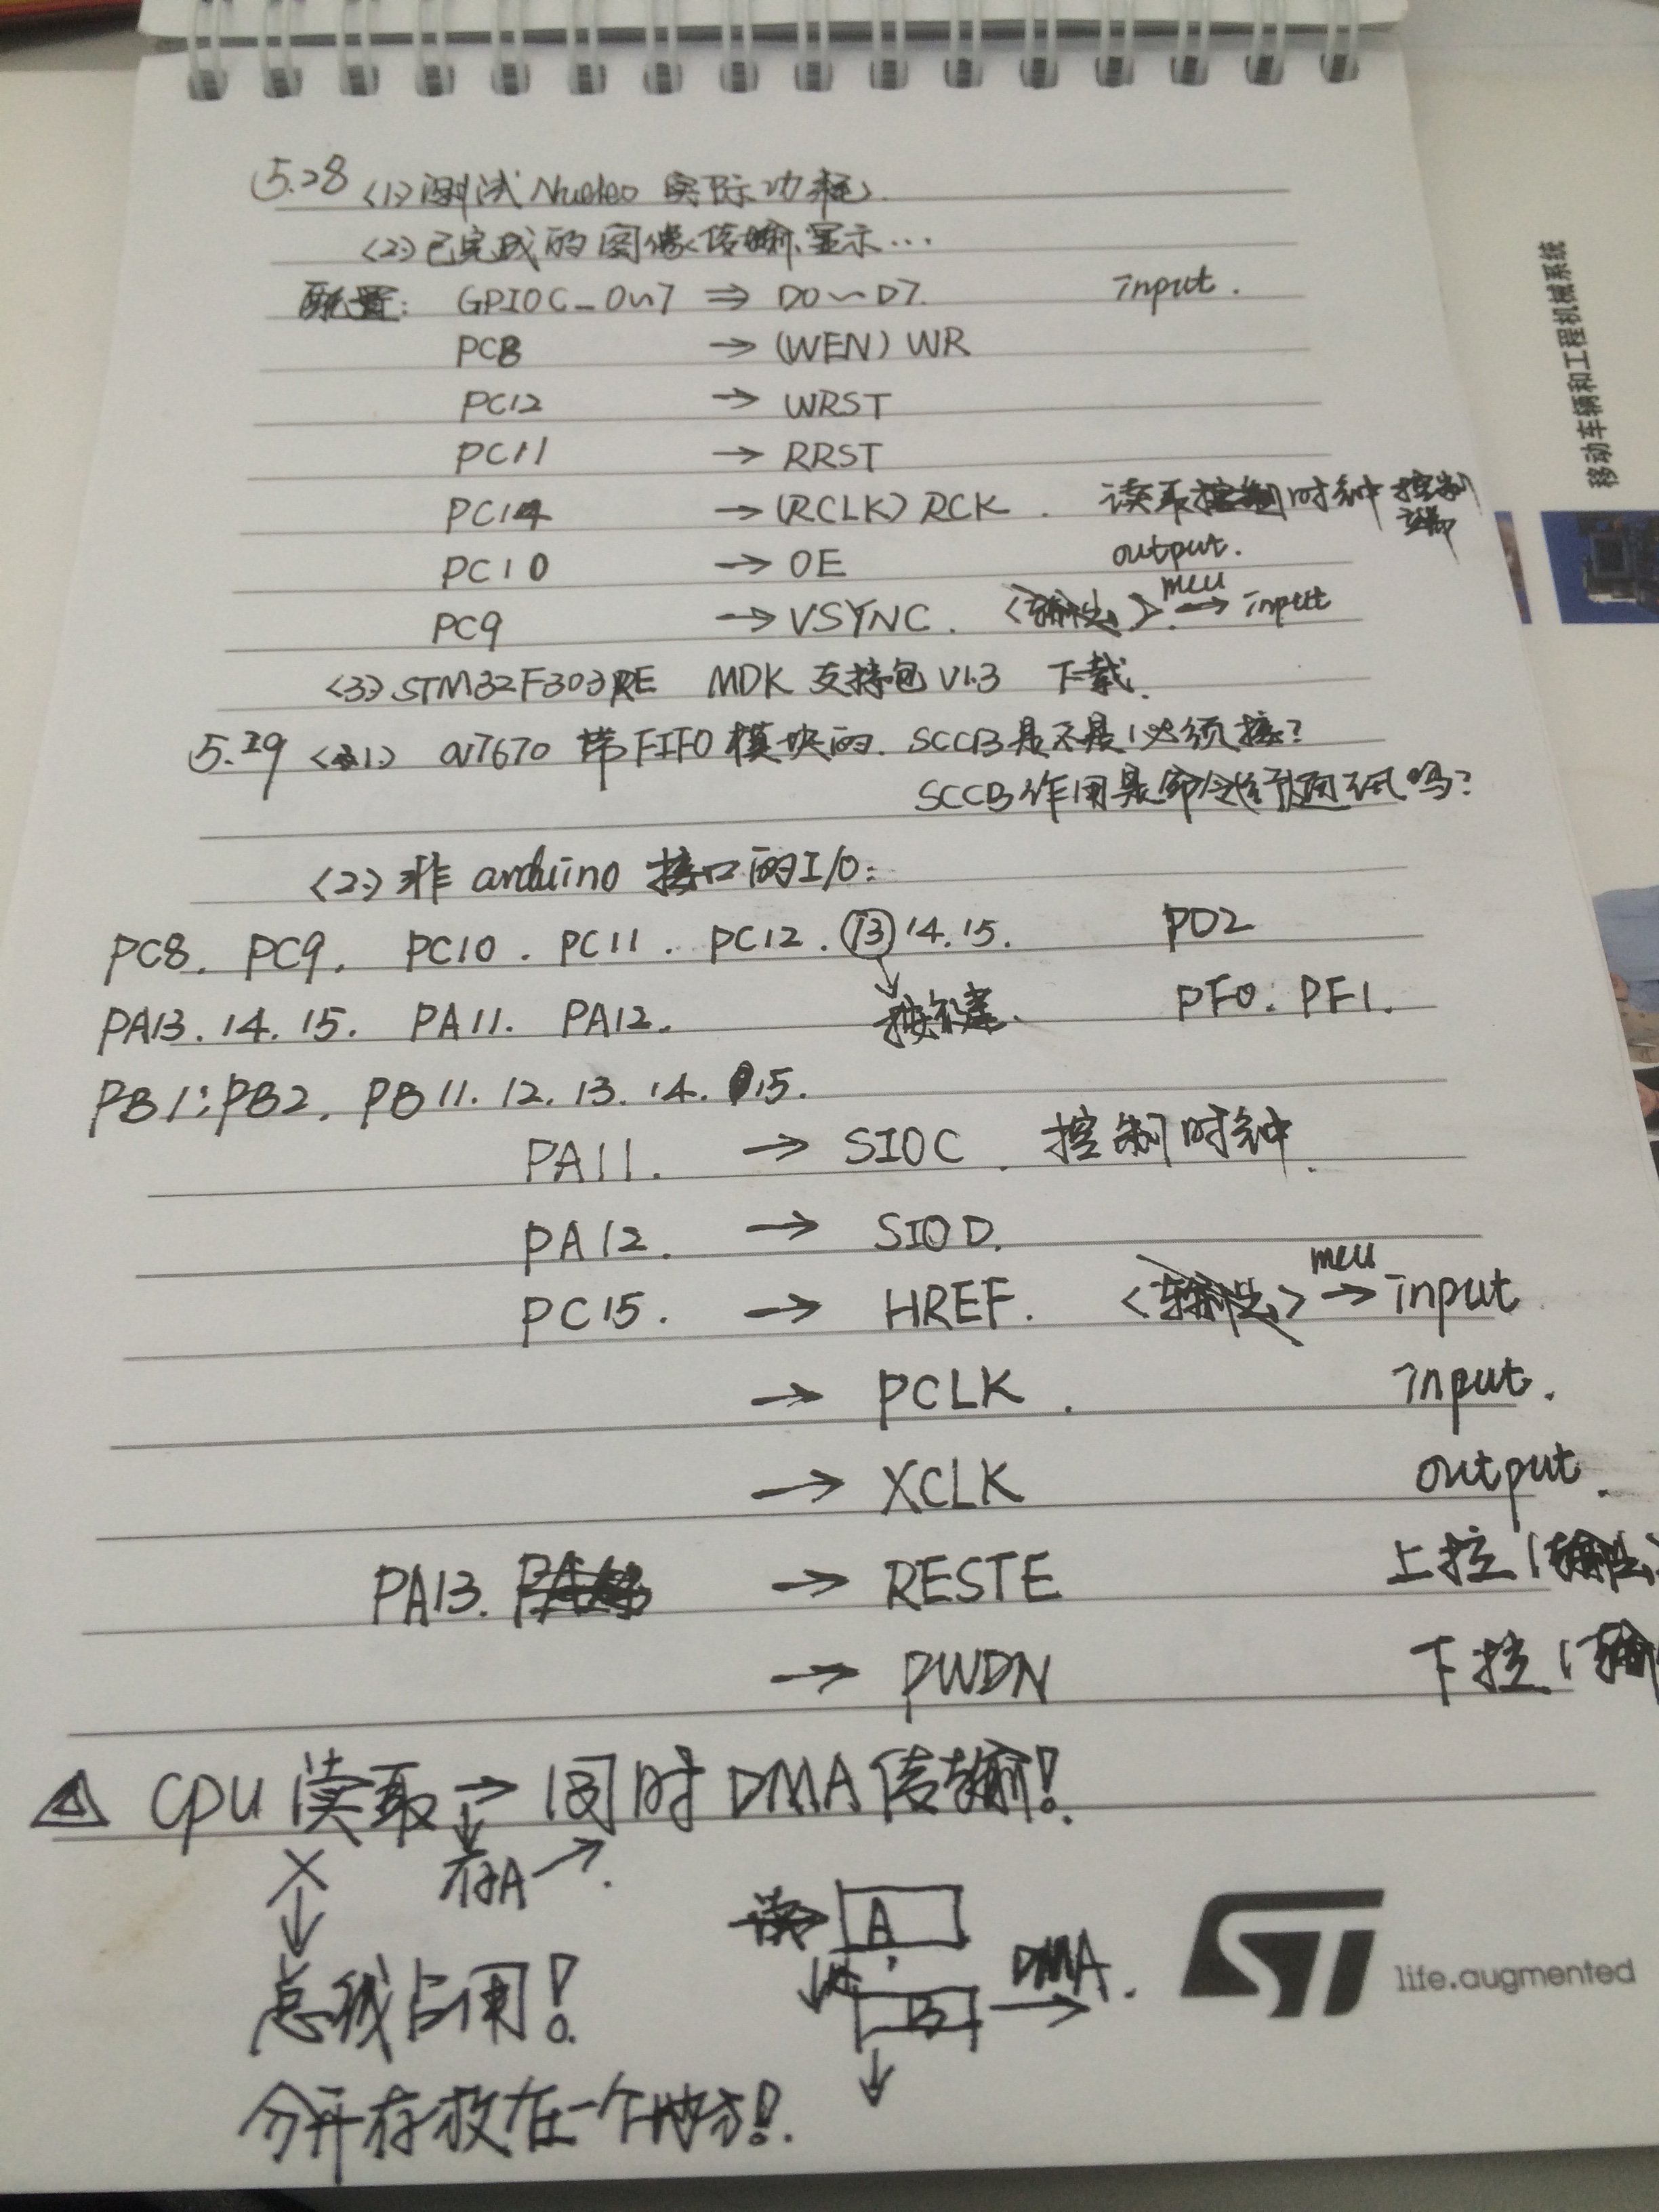 5.28 <1> 测试Nucleo 实际功耗.
<2> 已完成的图像传输、显示...
配置: GPIOC_0~7 ⇒ D0~D7. input.
PC8 → (WEN) WR
PC12 → WRST
PC11 → RRST
PC14 → (RCLK) RCK. 读取时钟控制端
PC10 → OE output.
PC9 → VSYNC. <输出> mcu → input
<3> STM32F303RE MDK 支持包 V1.3 下载.
5.29 <1> OV7670 带FIFO模块的. SCCB是不是必须接?
SCCB作用是命令传 吗?
<2> 非 arduino 接口的I/O:
PC8. PC9. PC10. PC11. PC12. 13 14. 15. PD2
PA13. 14. 15. PA11. PA12. 按键. PF0. PF1.
PB1; PB2. PB11. 12. 13. 14. 15.
PA11. → SIOC. 控制时钟.
PA12. → SIOD.
PC15. → HREF. <输出> mcu → input
→ PCLK. input.
→ XCLK output.
PA13. → RESTE 上拉 (输出)
→ PWDN 下拉 (输
△ CPU 读取 → 同时 DMA 传输!
× ↓ 存A ↗
↓ 读→ A
总线占用! B → DMA.
分开存放在一个地方!.
ST life.augmented
移动车辆和工程机械系统